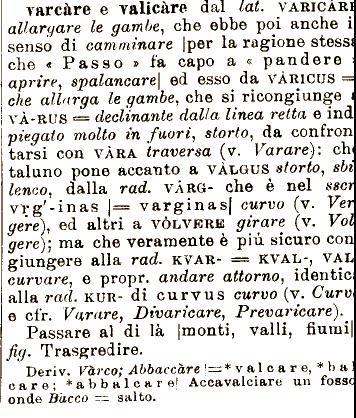 varcàre e valicàre dal lat. VARICÀRE
allargare le gambe, che ebbe poi anche i
senso di camminare |per la ragione stess
che « Passo » fa capo a « pandere
aprire, spalancare| ed esso da VÀRICUS =
che allarga le gambe, che si ricongiunge
VÀ-RUS = declinante dalla linea retta e ind
piegato molto in fuori, storto, da confron
tarsi con VÀRA traversa (v. Varare): ch
taluno pone accanto a VÀLGUS storto, sbi
lenco, dalla rad. VÀRG- che è nel sscr
vṛg'-inas |= varginas| curvo (v. Ver
gere), ed altri a VÒLVERE girare (v. Vol
gere); ma che veramente è più sicuro con
giungere alla rad. KVAR- = KVAL-, VAL
curvare, e propr. andare attorno, identic
alla rad. KUR- di curvus curvo (v. Curv
e cfr. Varare, Divaricare, Prevaricare).
Passare al di là |monti, valli, fiumi|
fig. Trasgredire.
Deriv. Vàrco; Abbaccàre |=*valcare, *bal
care; *abbalcare| Accavalciare un fosso
onde Bacco = salto.